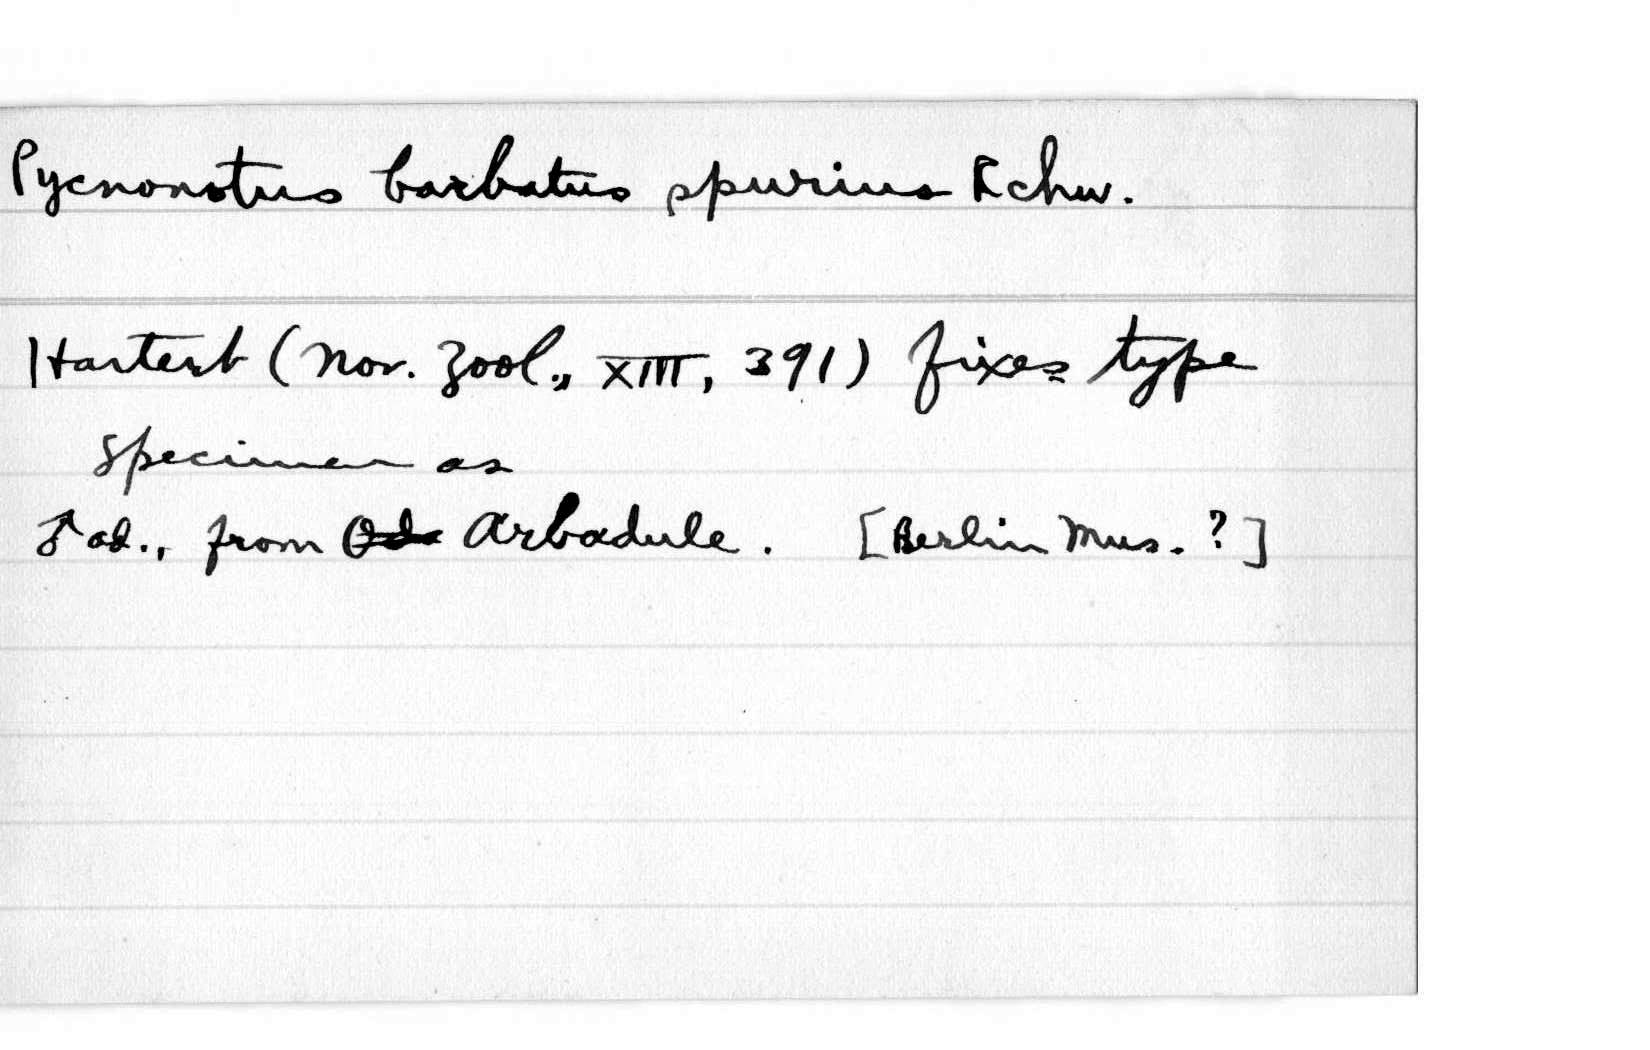 Pycnonotus barbatus spurius Rchw.
Hartert (Nov. Zool., XIII, 391) fixes type
specimen as
♂ ad., from Arbadule. [Berlin Mus.?]